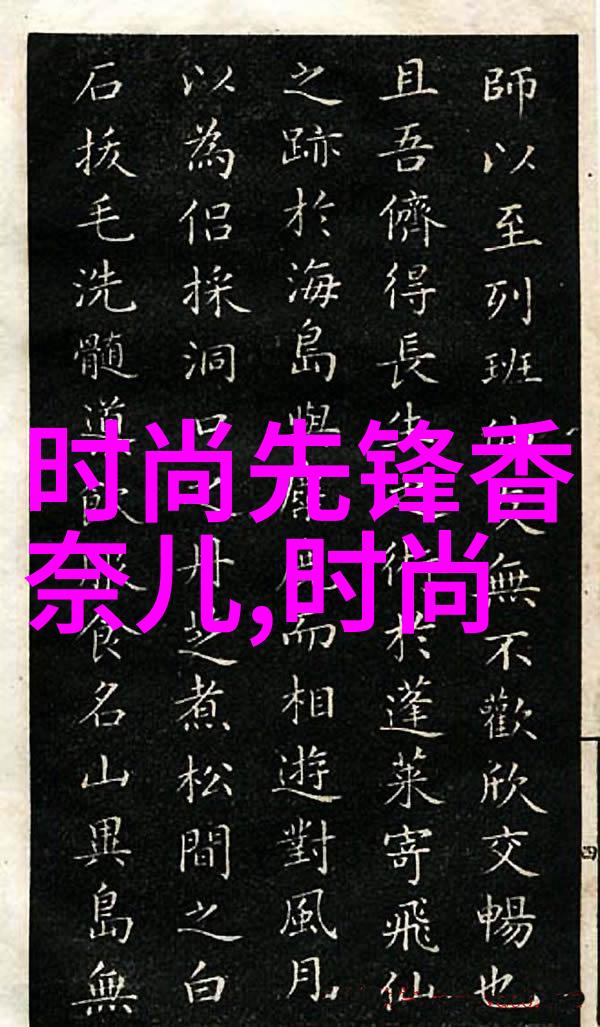 時尚先锋香
奈儿,时尚
師以至列班友無不歡欣交暢也
且吾儕得長生術於蓬萊寄飛仙
之跡於海島與而相遊對風月
以為侶採洞口之丹芝煮松間之白
石拔毛洗髓道飲服食名山異島無
四